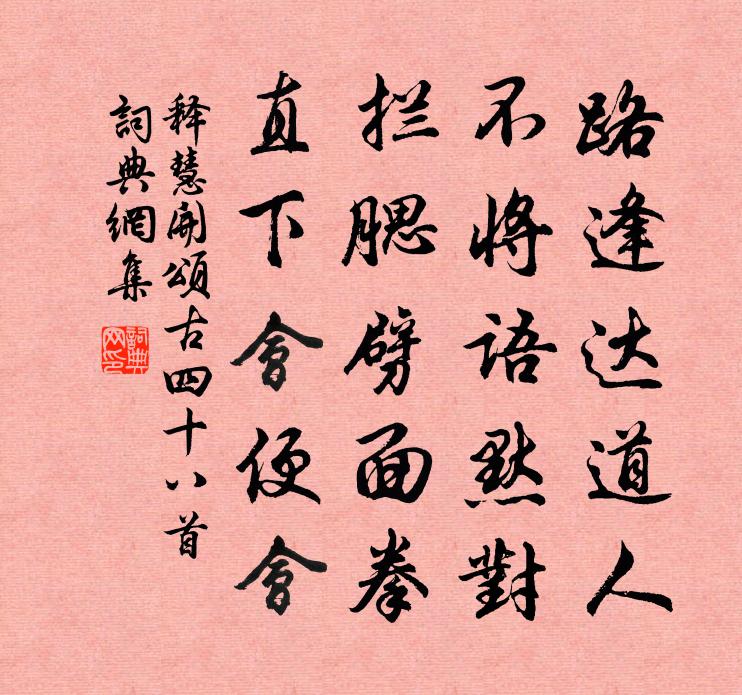 路逢达道人
不将語黙對
拦腮劈面拳
直下會便會
释慧開頌古四十八首
詞典網集
詞典网印